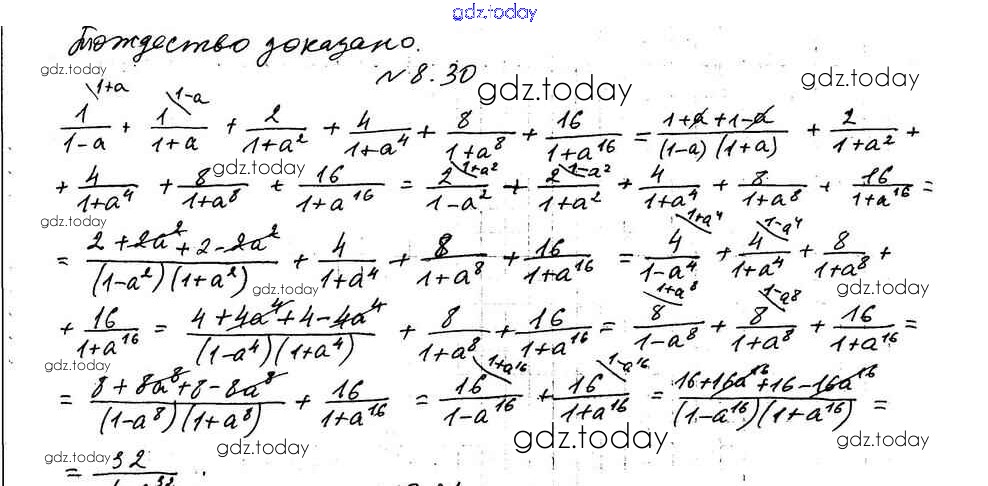 gdz.today
Тождество доказано.
gdz.today
№ 8.30
gdz.today gdz.today
1/(1-a) ^(1+a) + 1/(1+a) ^(1-a) + 2/(1+a²) + 4/(1+a⁴) + 8/(1+a⁸) + 16/(1+a¹⁶) = (1+a+1-a)/((1-a)(1+a)) + 2/(1+a²) +
gdz.today gdz.today
+ 4/(1+a⁴) + 8/(1+a⁸) + 16/(1+a¹⁶) = 2/(1-a²) ^(1+a²) + 2/(1+a²) ^(1-a²) + 4/(1+a⁴) + 8/(1+a⁸) + 16/(1+a¹⁶) =
gdz.today gdz.today
= (2+2a²+2-2a²)/((1-a²)(1+a²)) + 4/(1+a⁴) + 8/(1+a⁸) + 16/(1+a¹⁶) = 4/(1-a⁴) ^(1+a⁴) + 4/(1+a⁴) ^(1-a⁴) + 8/(1+a⁸) +
gdz.today gdz.today gdz.today
+ 16/(1+a¹⁶) = (4+4a⁴+4-4a⁴)/((1-a⁴)(1+a⁴)) + 8/(1+a⁸) + 16/(1+a¹⁶) = 8/(1-a⁸) ^(1+a⁸) + 8/(1+a⁸) ^(1-a⁸) + 16/(1+a¹⁶) =
gdz.today gdz.today
= (8+8a⁸+8-8a⁸)/((1-a⁸)(1+a⁸)) + 16/(1+a¹⁶) = 16/(1-a¹⁶) ^(1+a¹⁶) + 16/(1+a¹⁶) ^(1-a¹⁶) = (16+16a¹⁶+16-16a¹⁶)/((1-a¹⁶)(1+a¹⁶)) =
gdz.today gdz.today gdz.today gdz.today
= 32/(1-a³²) .